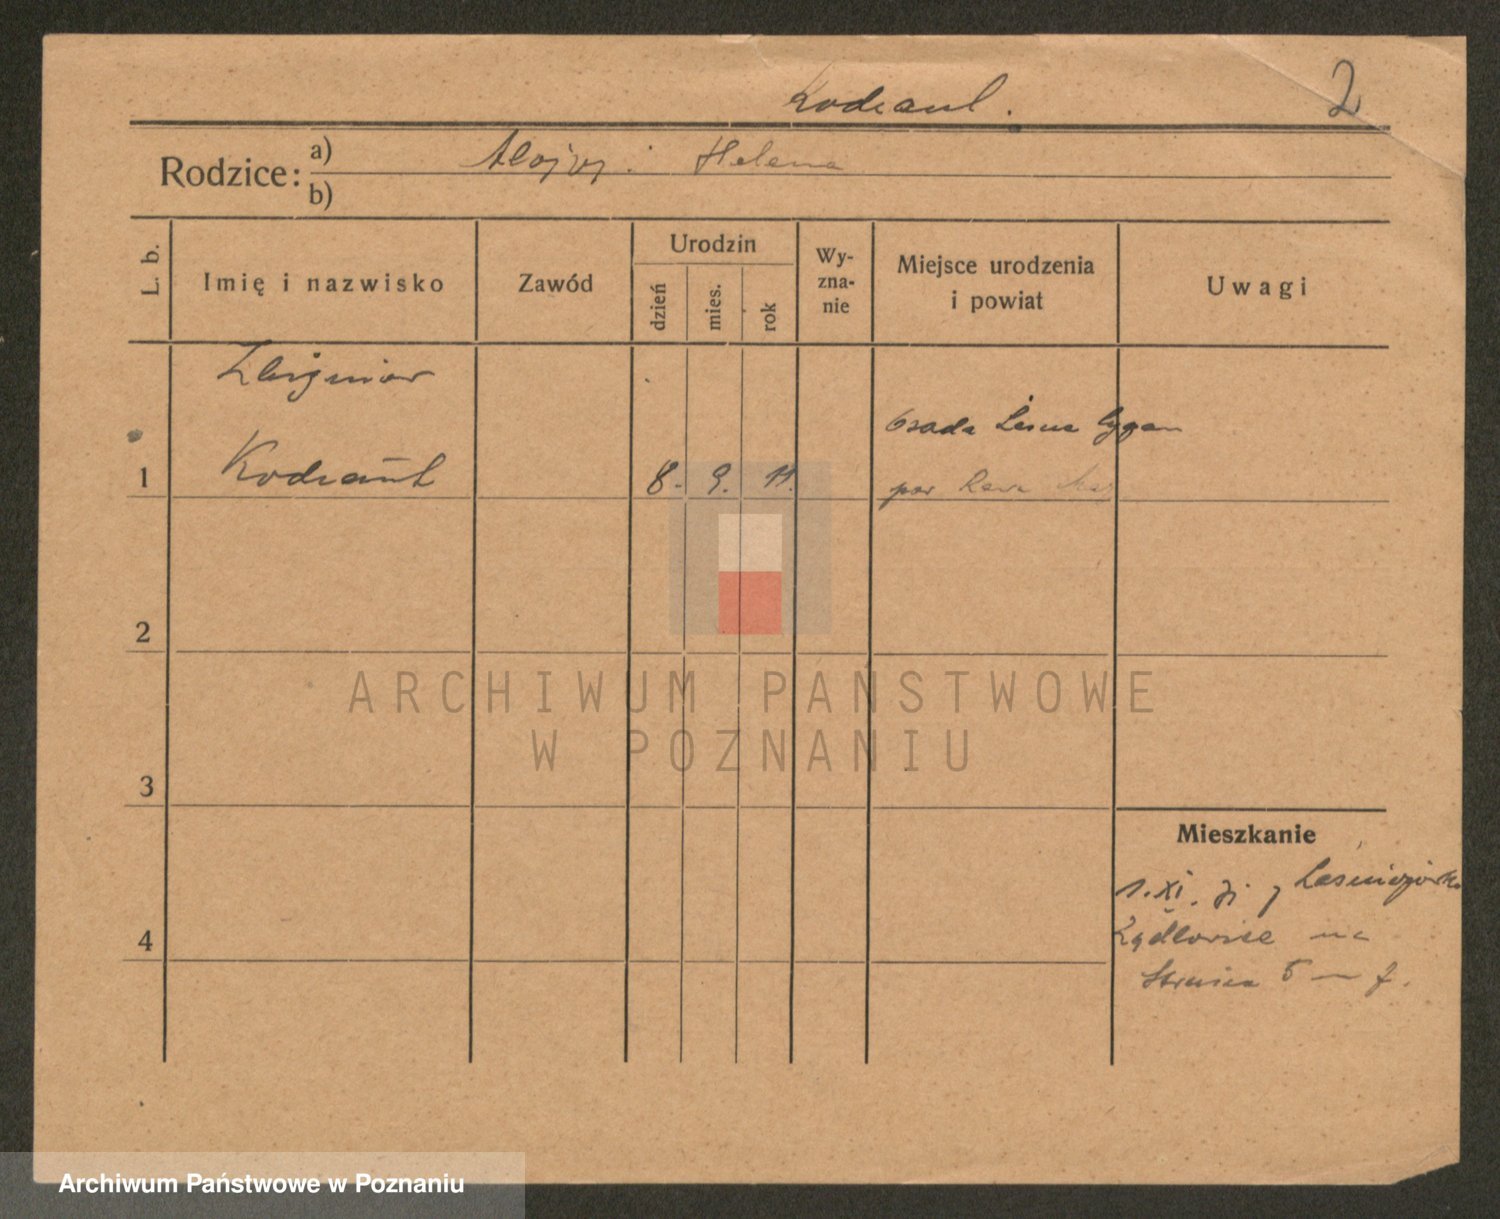 2
Rodzice: a) Alojzy i Helena
b)
L. b.
Imię i nazwisko
Zawód
Urodzin
dzień
mies.
rok
Wy-
zna-
nie
Miejsce urodzenia
i powiat
Uwagi
Zbigniew
Osada Leśna
1 8. 9. 11.
pow Rawa Maz
2
ARCHIWUM PAŃSTWOWE
W POZNANIU
3
Mieszkanie
1. XI.
4
na
5 — 7.
Archiwum Państwowe w Poznaniu